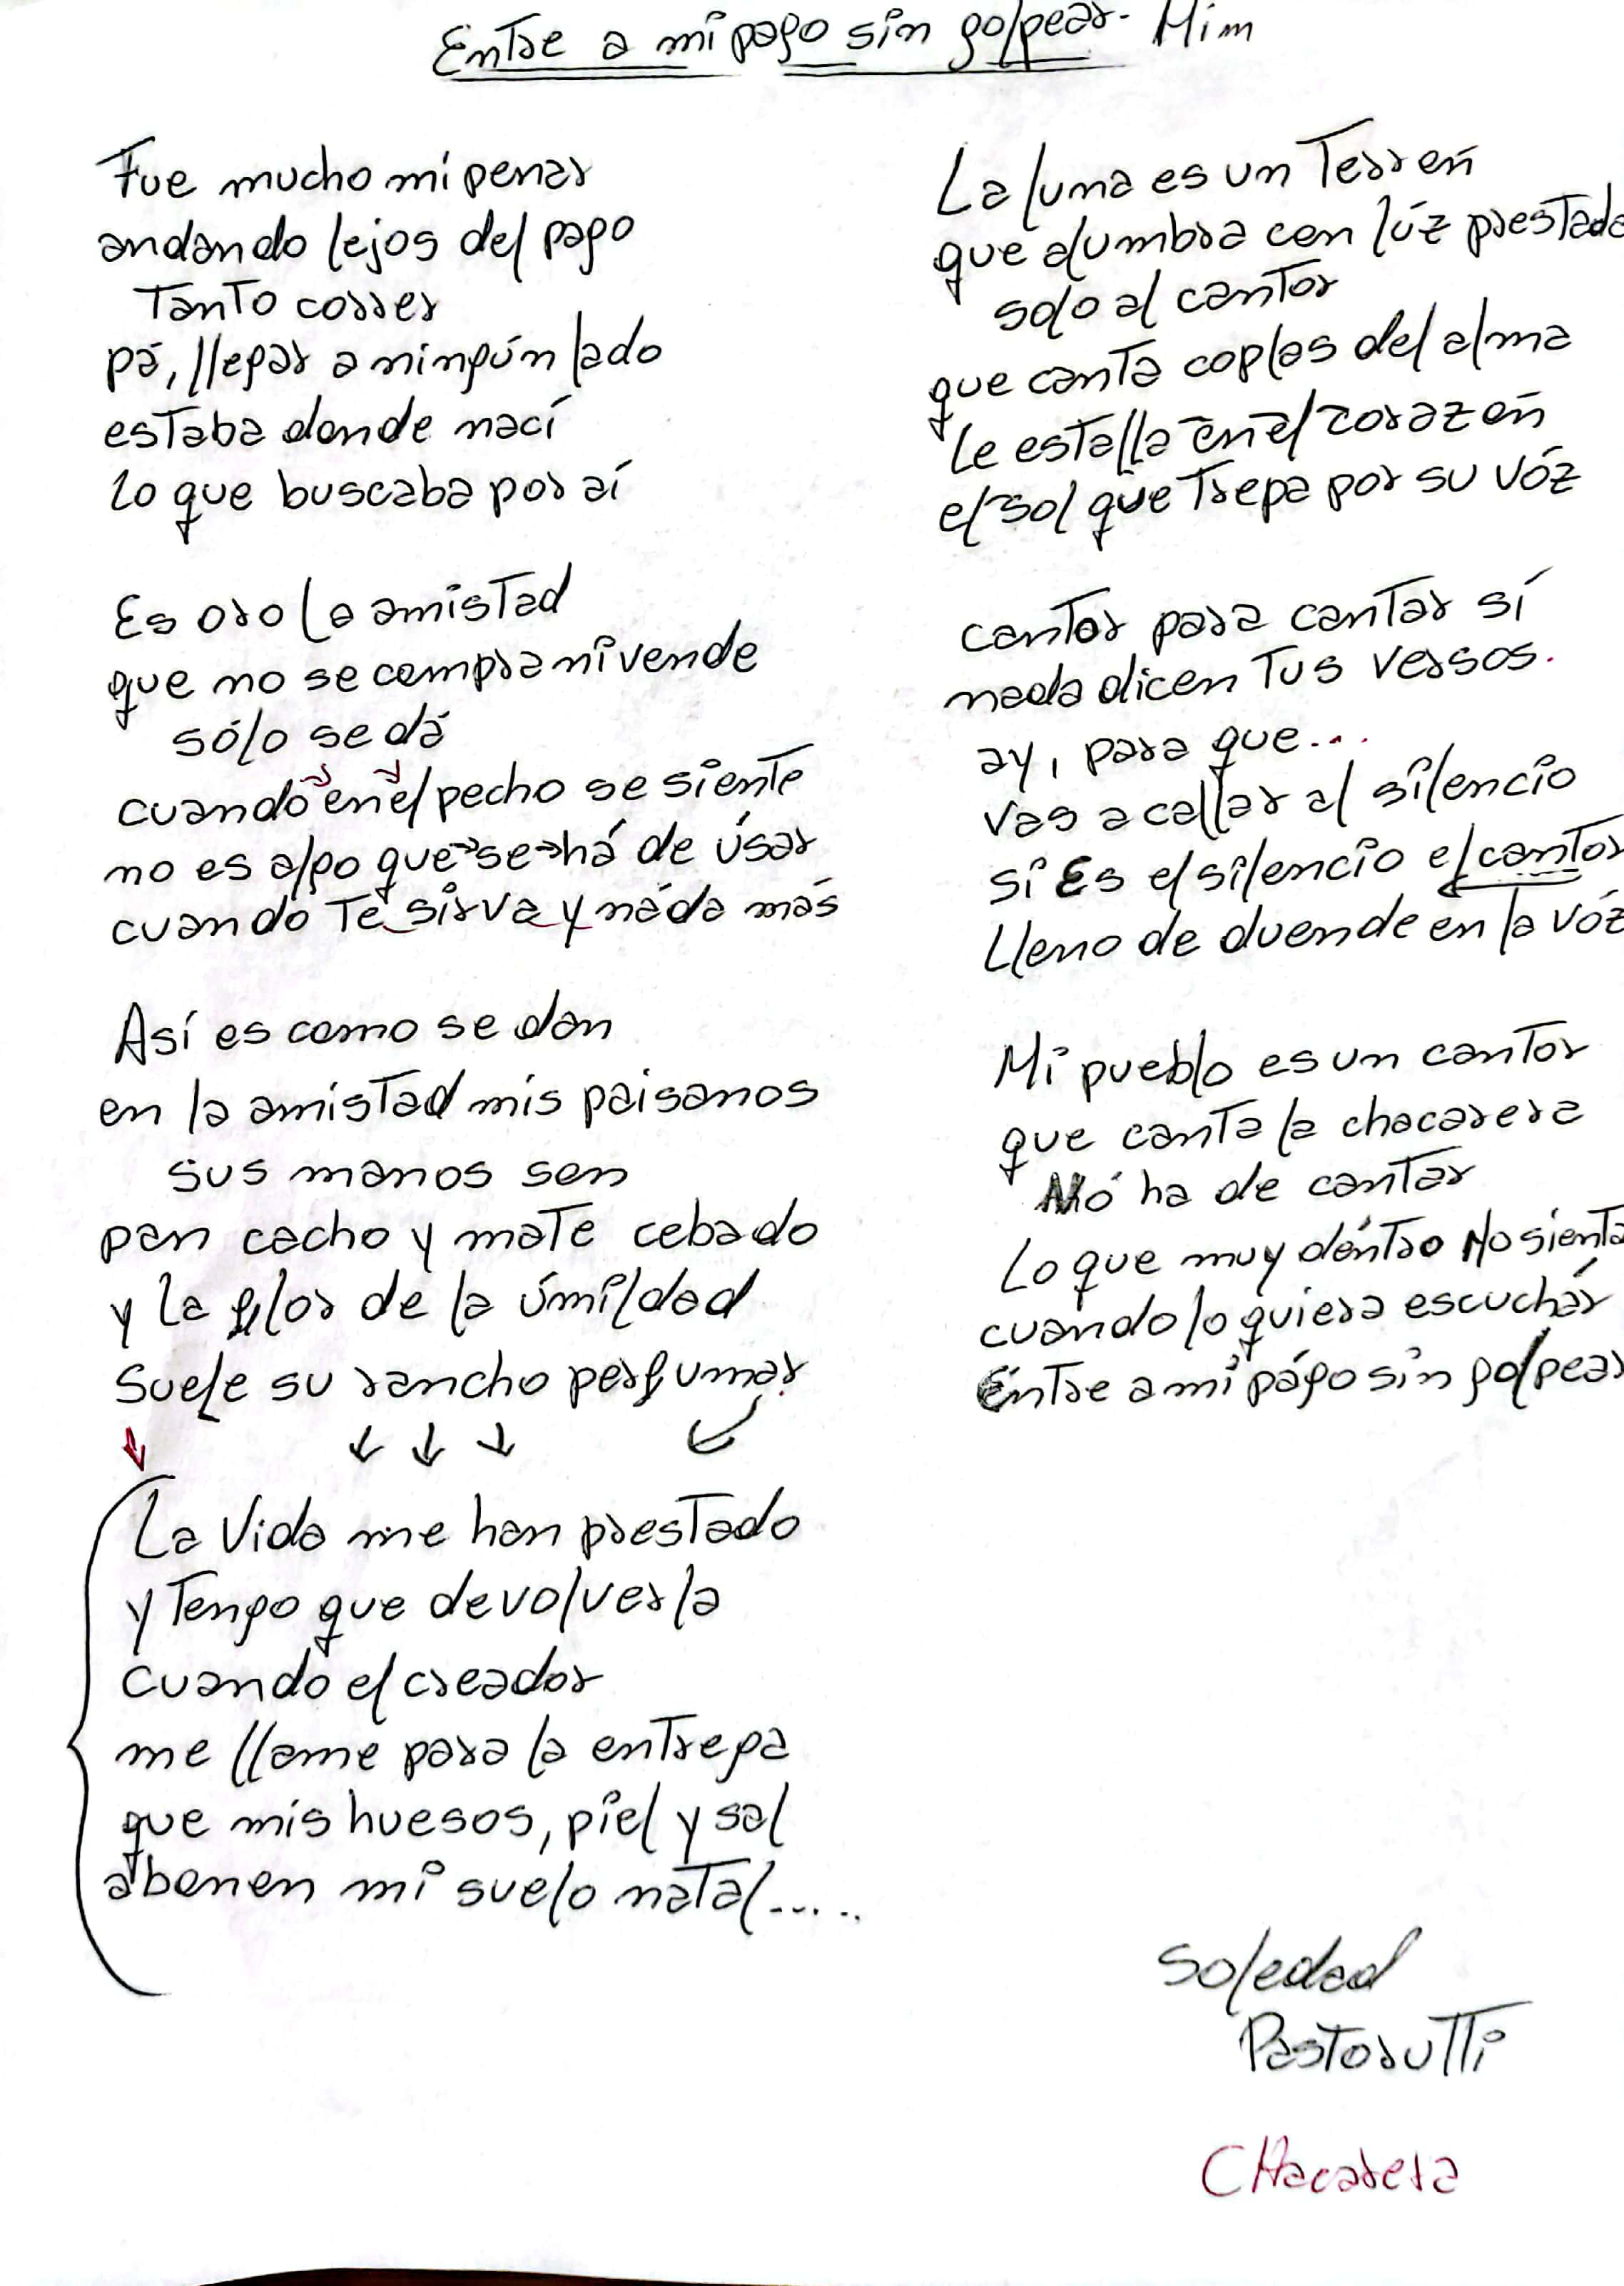 Entre a mi pago sin golpear - Mim
Fue mucho mi penar
andando lejos del pago
Tanto correr
pá, llegar a ningún lado
estaba donde nací
lo que buscaba por aí
Es oro la amistad
que no se compra ni vende
sólo se dá
cuando en el pecho se siente
no es algo que se há de úsar
cuando Te sirva y náda más
Así es como se dan
en la amistad mis paisanos
sus manos son
pan cacho y mate cebado
y la flor de la úmildad
Suele su rancho perfumar
La Vida me han prestado
y Tengo que devolverla
cuando el creador
me llame para la entrega
que mis huesos, piel y sal
abonen mi suelo natal.....
La luna es un Terrón
que alumbra con lúz prestada
solo al cantor
que canta coplas del alma
Le estalla en el corazón
el sol que Trepa por su vóz
cantor para cantar sí
nada dicen Tus versos.
ay, para que...
vas a callar al silencio
si Es el silencio el cantor
Lleno de duende en la vóz
Mi pueblo es un cantor
que canta la chacarera
Nó ha de cantar
Lo que muy déntro No sienta
cuando lo quiera escuchár
Entre a mi págo sin golpear
Soledad
Pastorutti
CHacarera